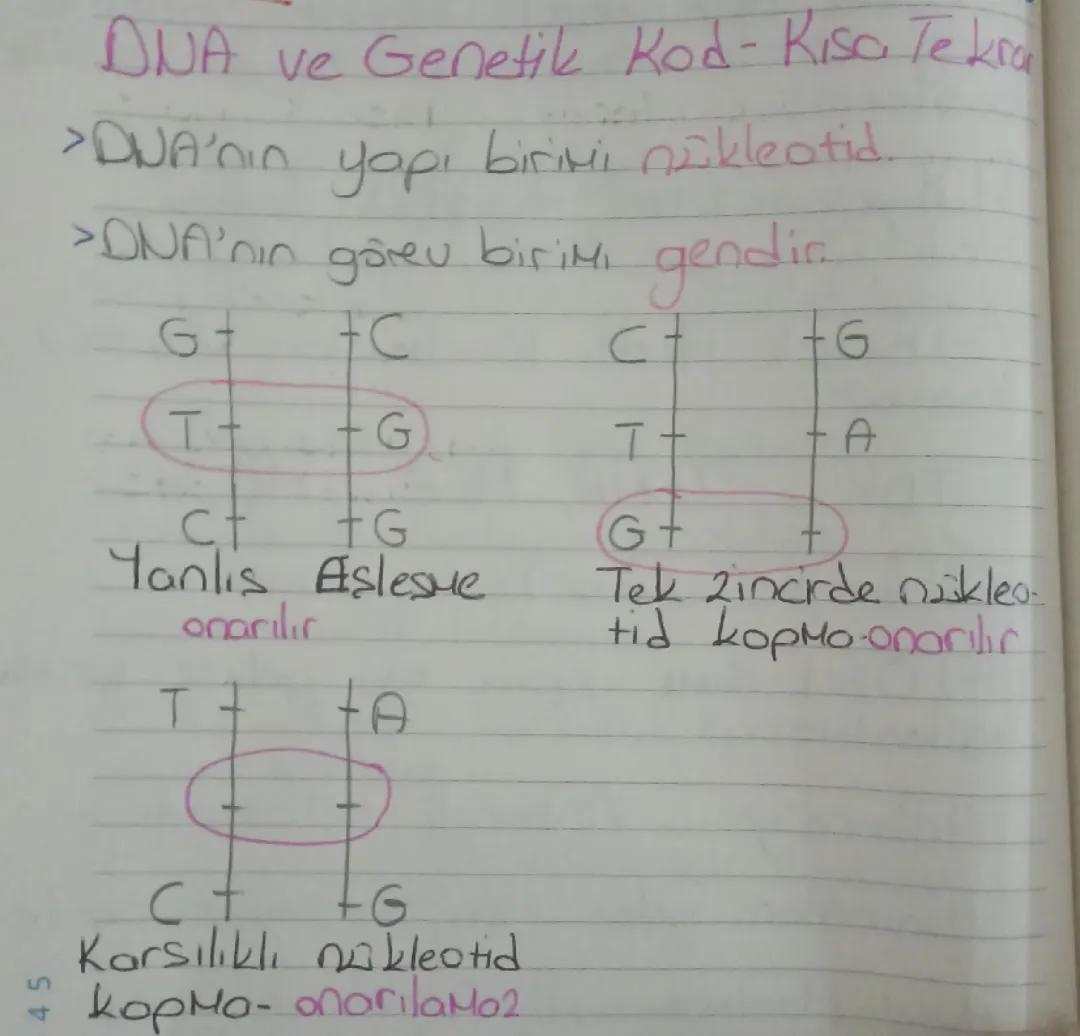 DNA ve Genetik Kod - Kısa Tekrar
>DNA'nın yapı birimi nükleotid.
>DNA'nın görev birimi gendir.
G C
T G
C G
Yanlıs Eşlesme
onarılır
C G
T A
G
Tek zincirde nükleo-
tid kopma-onarılır
T A
C G
Karsılıklı nükleotid
kopma- onarılamaz
45